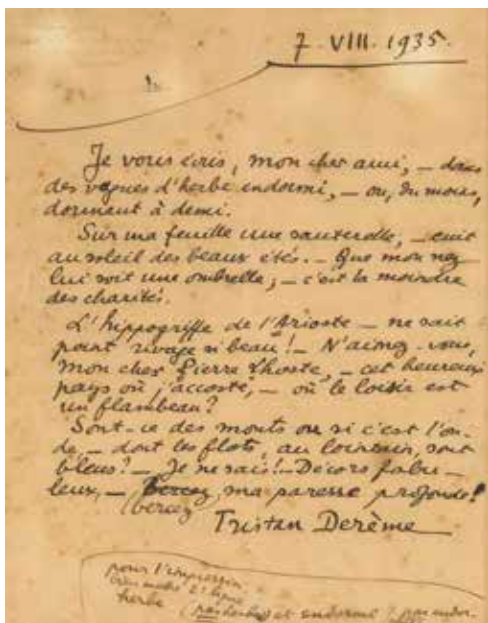 7. VIII. 1935.
Je vous écris, mon cher ami, — dans
des vagues d'herbe endormi, — ou, du moins,
dormant à demi.
Sur ma feuille une sauterelle, — cuit
au soleil des beaux étés. — Que mon nez
lui soit une ombrelle, — c'est la moindre
des charités.
L'hippogriffe de l'Arioste — ne sait
point rivage si beau! — N'aimez-vous,
mon cher Pierre Lhoste, — cet heureux
pays où j'accoste, — où le loisir est
un flambeau?
Sont-ce des monts ou si c'est l'on-
de, — dont les flots, au lointain, sont
bleus? — Je ne sais! — Décors fabu-
leux, — Bercez, ma paresse profonde!
(bercez
Tristan Derème
pour l'impression
2e ligne
herbe (pas herbes) et endormi